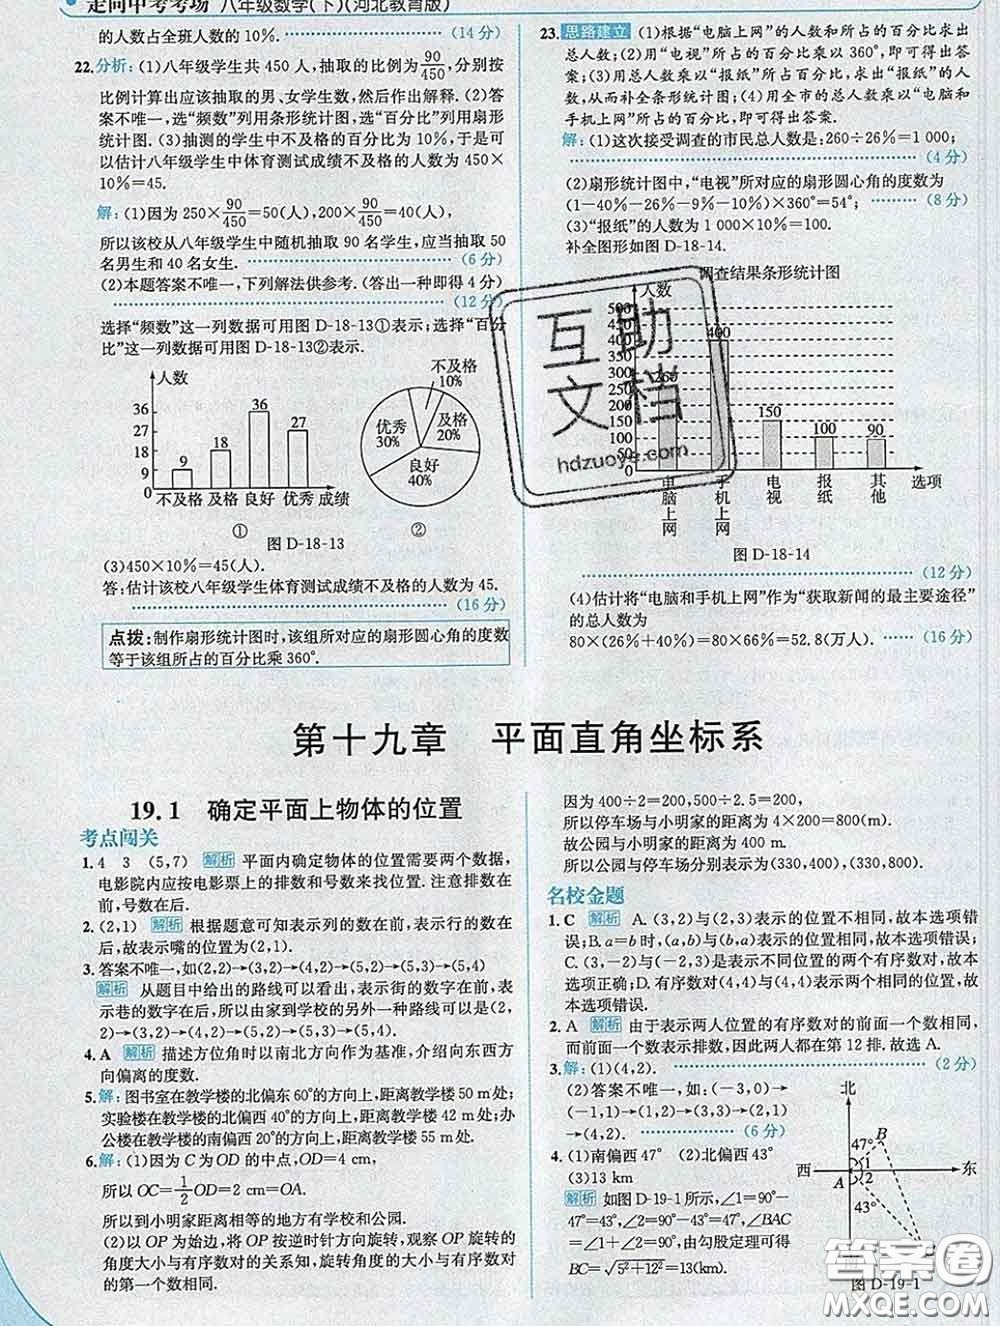 走向中考考场 八年级数学(下)(河北教育版)
的人数占全班人数的10%. (14分)
22.分析:(1)八年级学生共450人,抽取的比例为90/450,分别按
比例计算出应该抽取的男、女学生数,然后作出解释.(2)答
案不唯一,选“频数”列用条形统计图,选“百分比”列用扇形
统计图.(3)抽测的学生中不及格的百分比为10%,于是可
以估计八年级学生中体育测试成绩不及格的人数为450×
10%=45.
解:(1)因为250×90/450=50(人),200×90/450=40(人),
所以该校从八年级学生中随机抽取90名学生,应当抽取50
名男生和40名女生. (6分)
(2)本题答案不唯一,下列解法供参考.(答出一种即得4分)
(12分)
选择“频数”这一列数据可用图D-18-13①表示;选择“百分
比”这一列数据可用图D-18-13②表示.
人数
36
27
18
9
0
9
18
36
27
不及格 及格 良好 优秀 成绩
①
不及格
10%
及格
20%
优秀
30%
良好
40%
②
图D-18-13
(3)450×10%=45(人).
答:估计该校八年级学生体育测试成绩不及格的人数为45.
(16分)
点拨:制作扇形统计图时,该组所对应的扇形圆心角的度数
等于该组所占的百分比乘360°.
23.思路建立 (1)根据“电脑上网”的人数和所占的百分比求出
总人数;(2)用“电视”所占的百分比乘以360°,即可得出答
案;(3)用总人数乘以“报纸”所占百分比,求出“报纸”的人
数,从而补全条形统计图;(4)用全市的总人数乘以“电脑和
手机上网”所占的百分比,即可得出答案.
解:(1)这次接受调查的市民总人数是:260÷26%=1 000;
(4分)
(2)扇形统计图中,“电视”所对应的扇形圆心角的度数为
(1-40%-26%-9%-10%)×360°=54°; (8分)
(3)“报纸”的人数为1 000×10%=100.
补全图形如图D-18-14.
调查结果条形统计图
人数
500
450
400
350
300
250
200
150
100
50
0
260
400
150
100
90
电脑上网
手机上网
电视
报纸
其他
选项
图D-18-14
(12分)
(4)估计将“电脑和手机上网”作为“获取新闻的最主要途径”
的总人数为
80×(26%+40%)=80×66%=52.8(万人). (16分)
互助
文档
hdzuoye.com
第十九章 平面直角坐标系
19.1 确定平面上物体的位置
考点闯关
1.4 3 (5,7) 解析 平面内确定物体的位置需要两个数据,
电影院内应按电影票上的排数和号数来找位置.注意排数在
前,号数在后.
2.(2,1) 解析 根据题意可知表示列的数在前,表示行的数在
后,故表示嘴的位置为(2,1).
3.答案不唯一,如(2,2)→(3,2)→(4,2)→(5,2)→(5,3)→(5,4)
解析 从题目中给出的路线可以看出,表示街的数字在前,表
示巷的数字在后,所以由家到学校的另外一种路线可以是(2,
2)→(3,2)→(4,2)→(5,2)→(5,3)→(5,4).
4.A 解析 描述方位角时以南北方向作为基准,介绍向东西方
向偏离的度数.
5.解:图书室在教学楼的北偏东60°的方向上,距离教学楼50 m处;
实验楼在教学楼的北偏西40°的方向上,距离教学楼42 m处;办
公楼在教学楼的南偏西20°的方向上,距离教学楼55 m处.
6.解:(1)因为C为OD的中点,OD=4 cm,
所以OC=1/2OD=2 cm=OA.
所以到小明家距离相等的地方有学校和公园.
(2)以OP为始边,将OP按逆时针方向旋转,观察OP旋转的
角度大小与有序数对的关系知,旋转角度的大小与有序数对
的第一个数相同.
因为400÷2=200,500÷2.5=200,
所以停车场与小明家的距离为4×200=800(m).
故公园与小明家的距离为400 m.
所以公园与停车场分别表示为(330,400),(330,800).
名校金题
1.C 解析 A.(3,2)与(2,3)表示的位置不相同,故本选项错
误;B.a=b时,(a,b)与(b,a)表示的位置相同,故本选项错误;
C.(3,-2)与(-2,3)是表示不同位置的两个有序数对,故本
选项正确;D.有序数对(4,4)与(4,4)表示两个相同的位置,故
本选项错误.
2.A 解析 由于表示两人位置的有序数对的前面一个数相同,
而前面一个数表示排数,因此两人都在第12排.故选A.
3.解:(1)(4,2). (2分)
(2)答案不唯一,如:(-3,0)→
(-1,1)→(1,2)→(3,2)→(2,1)
→(4,2). (6分)
4.(1)南偏西47° (2)北偏西43°
(3)13 km
解析 如图D-19-1所示,∠1=90°-
47°=43°,∠2=90°-43°=47°,∠BAC
=∠1+∠2=90°,由勾股定理可得
BC=√5²+12²=13(km).
北
47°
B
西
1
东
A
2
43°
C
图D-19-1
答案圈
MXQE.COM